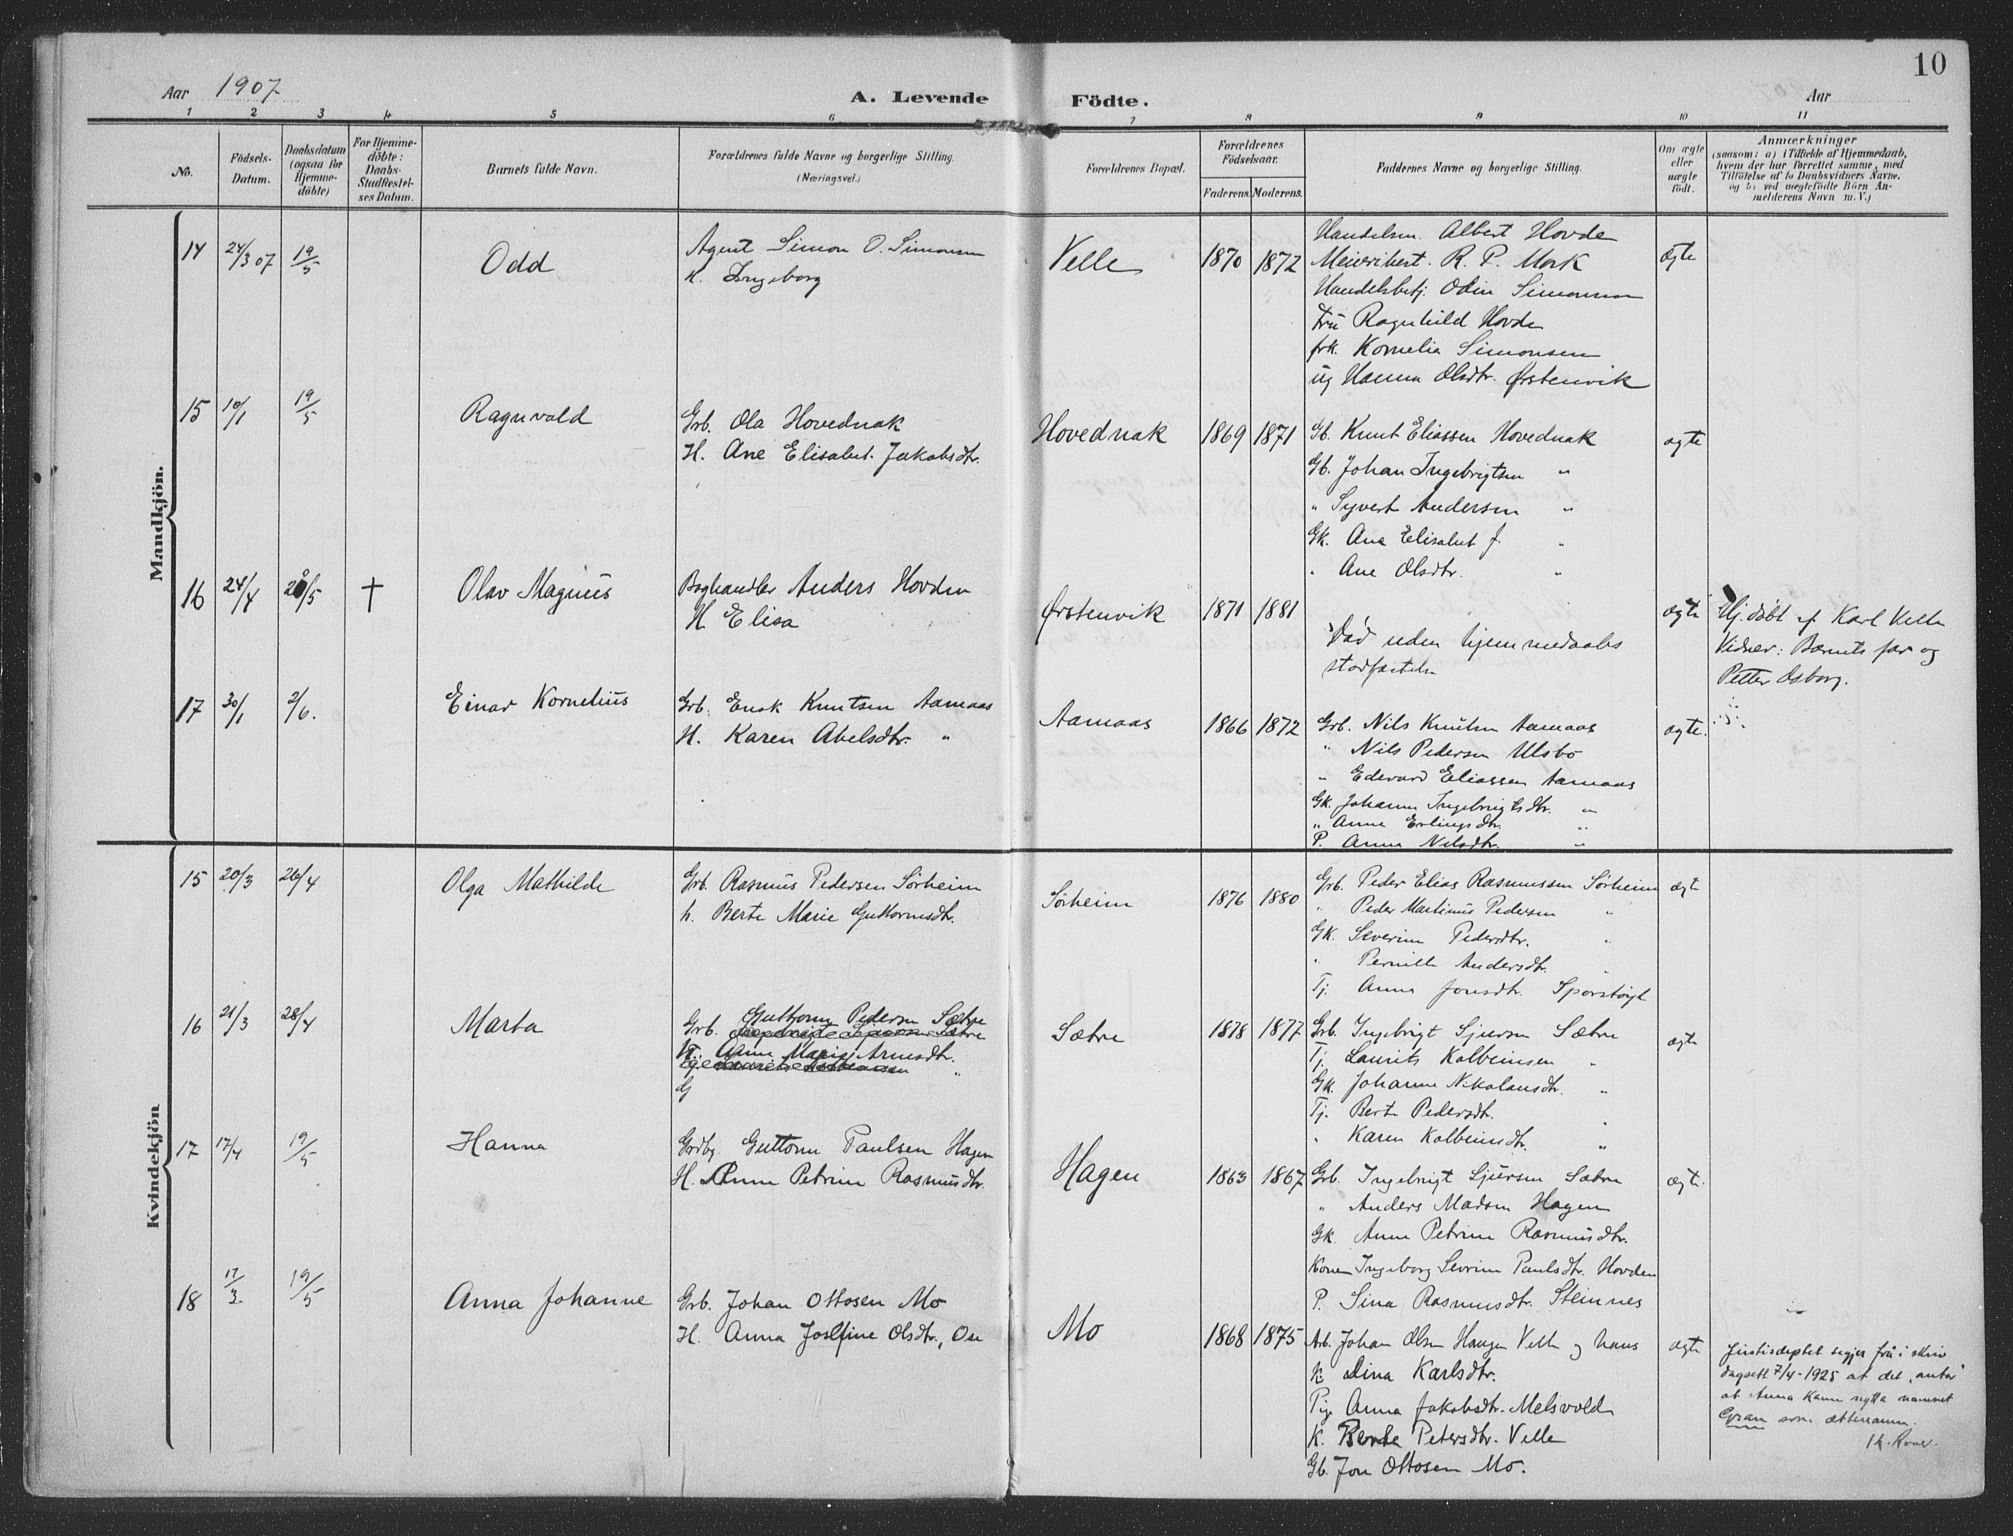 10
Aar 1907
A. Levende Födte.
Aar
1 2 3 4 5 6 7 8 9 10 11
No.
Födsels-Datum.
Daabsdatum (ogsaa for Hjemmedöbte)
For Hjemmedöbte: Daabs-Stadfæstelses Datum.
Barnets fulde Navn.
Forældrenes fulde Navne og borgerlige Stilling.
(Næringsvei.)
Forældrenes Bopæl.
Forældrenes Födselsaar.
Faderens. Moderens.
Faddernes Navne og borgerlige Stilling.
Om ægte eller uægte födt.
Anmærkninger
(saasom: a) i Tilfælde af Hjemmedaab,
hvem der har forrettet samme, med
Tilföielse af to Daabsvidners Navne.
og b) ved uægtefödte Börn An-
melderens Navn m. V.)
Mandkjön.
14 24/3 07 19/5 Odd
Agent Simon O. Simonsen
K. Ingeborg
Velle 1870 1872
Handelsm. Albert Hovde
Meieribest. R. P. Mork
Handelsbetj. Odin Simonsen
Fru Ragnhild Hovde
frk. Kornelia Simonsen
ug Hanna Olsdtr. Ørstenvik
ægte
15 10/1 19/5 Ragnvald
Grb. Ola Hovednak
H. Ane Elisabet Jakobsdtr.
Hovednak 1869 1871
Gb. Knut Eliassen Hovednak
Gb. Johan Ingebrigtsen "
" Syvert Andersen "
Gk. Ana Elisabet J. "
" Ane Olsdtr. "
ægte
16 24/4 20/5 † Olav Magnus
Boghandler Anders Hovden
H Elisa
Ørstenvik 1871 1881
Død uden hjemmedaabs
stadfæstelse
ægte
Hj.døbt af Karl Velle
Vidner: Barnets far og
Petter Osborg.
17 30/1 2/6. Einar Kornelius
Grb. Enok Knutsen Aamaas
H. Karen Abelsdtr. "
Aamaas 1866 1872
Grb. Nils Knutsen Aamaas
" Nils Pedersen Ulsbo
" Edevard Eliassen Aamaas
Gk. Johanna Ingebrigtsdtr. "
" Anna Erlingsdtr. "
P. Anna Nilsdtr. "
ægte.
Kvindekjön
15 20/3 26/4 Olga Mathilde
Grb. Rasmus Pedersen Sørheim
h. Berte Marie Guttormsdtr.
Sørheim 1876 1880
Grb. Peder Elias Rasmussen Sørheim
" Peder Martinus Pedersen "
Gk. Severine Pedersdtr. "
" Pernille Andersdtr. "
Tj. Anna Jonsdtr. Sporstøyl
ægt
16 21/3 28/4 Marta
Grb. Guttorm Pedersen Sætre
H. Anne Marie Arnesdtr. "
G
Sætre 1878 1877
Grb. Ingebrigt Sjursen Sætre
Tj. Laurits Kolbeinsen "
Gk. Johanne Nikolausdtr. "
Tj. Berte Pedersdtr. "
" Karen Kolbeinsdtr. "
ægte
17 17/4 19/5 Hanna
Grdbr Guttorm Paulsen Hagen
H. Anne Petrine Rasmusdtr.
Hagen 1863 1867
Grb. Ingebrigt Sjursen Sætre
" Anders Madsen Hagen
Gk. Anne Petrine Rasmusdtr.
Konen Ingeborg Sevrine Paulsdtr. Hovden
P. Sina Rasmusdtr. Steinnes
ægte.
18 17/3. 19/5 Anna Johanne
Grb. Johan Ottosen Mo
H. Anna Josefine Olsdtr., Ose
Mo 1868 1875
Arb. Johan Olsen Haugen Velle og hans
K. Lina Karlsdtr.
Pig. Anna Jakobsdtr. Melsvold
K. Berte Petersdtr. Velle
Gb. Jon Ottosen Mo.
ægte
Justisdeptet segjer frå i skriv
dagsett 7/4-1925 at det "antar"
at Anna kann nytta namnet
Gran som ættenamn.